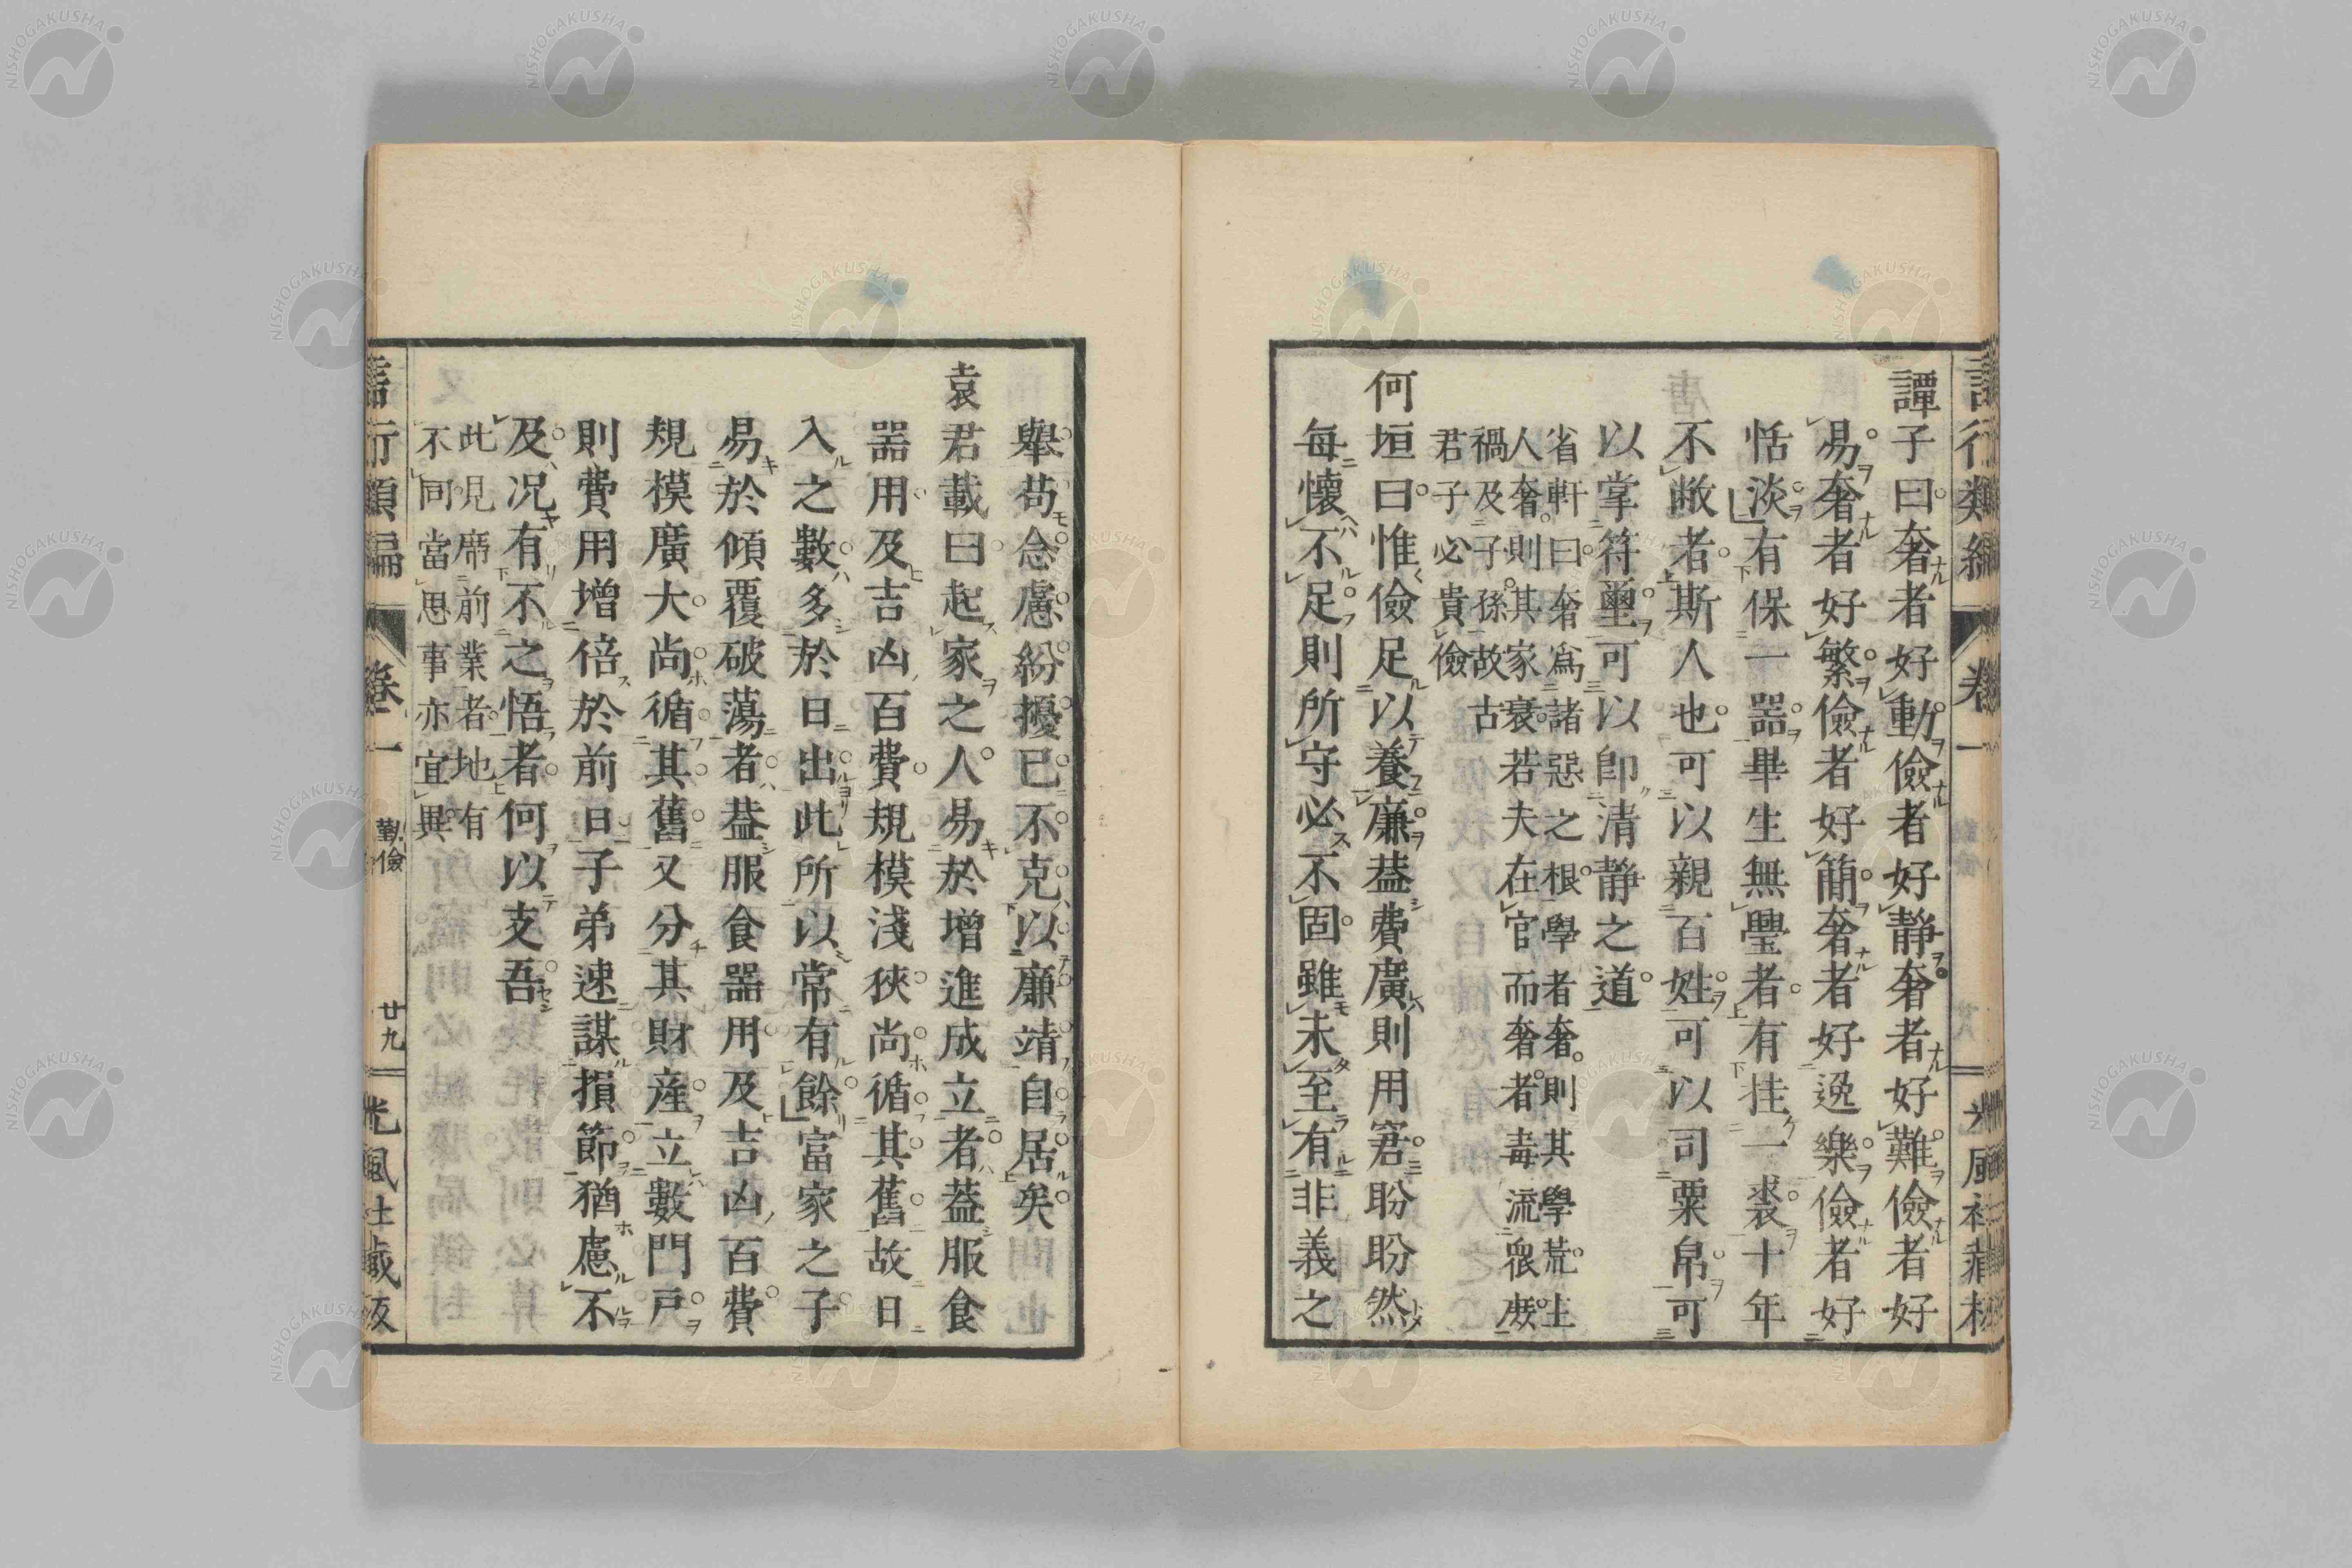 譚子曰奢者好動儉者好静奢者好難儉者好
易奢者好繁儉者好簡奢者好逸樂儉者好
恬淡有保一器畢生無璺者有挂一裘十年
不敝者斯人也可以親百姓可以司粟帛可
以掌符璽可以即清静之道
省軒曰奢爲諸惡之根學者奢則其學荒主
人奢則其家衰若夫在官而奢者毒流衆庶
禍及子孫故古
君子必貴儉
何垣曰惟儉足以養廉葢費廣則用窘盼盼然
每懷不足則所守必不固雖未至有非義之
舉苟念慮紛擾已不克以廉靖自居矣
袁君載曰起家之人易於增進成立者葢服食
器用及吉凶百費規模淺狹尚循其舊故日
入之數多於日出此所以常有餘富家之子
易於傾覆破蕩者葢服食器用及吉凶百費
規模廣大尚循其舊又分其財産立數門戸
則費用增倍於前日子弟速謀損節猶慮不
及况有不之悟者何以支吾
此見席前業者地有
不同當思事亦宜異
言行類編 卷一 勤儉 廿九 光風社藏板